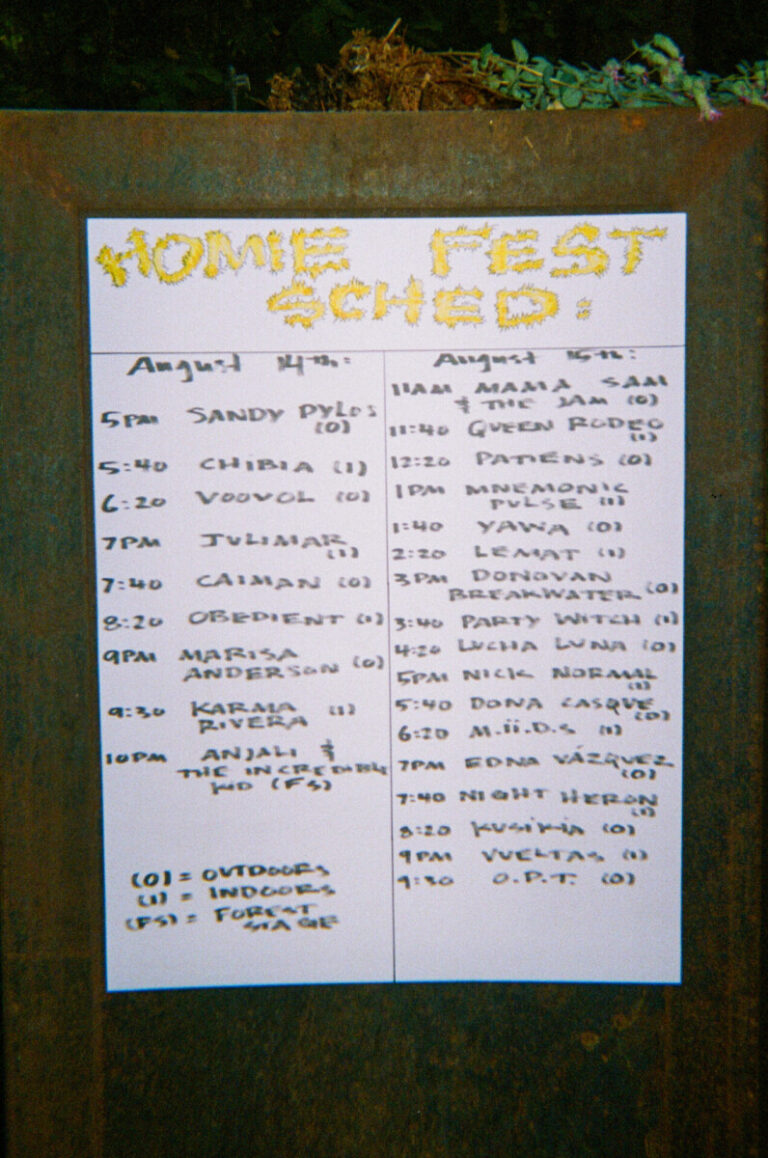 HOMIE FEST
SCHED:
August 14th:
5PM SANDY PYLOS
(O)
5:40 CHIBIA (I)
6:20 VOOVOL (O)
7PM JULIMAR
(I)
7:40 CAIMAN (O)
8:20 OBEDIENT (I)
9PM MARISA
ANDERSON (O)
9:30 KARMA (I)
RIVERA
10PM ANJALI &
THE INCREDIBLE
KID (FS)
(O) = OUTDOORS
(I) = INDOORS
(FS) = FOREST
STAGE
August 15th:
11AM MAMA SAM
& THE JAM (O)
11:40 QUEEN RODEO
(I)
12:20 PATIENS (O)
1PM MNEMONIC
PULSE (I)
1:40 YAWA (O)
2:20 LEMAT (I)
3PM DONOVAN
BREAKWATER (O)
3:40 PARTY WITCH (I)
4:20 LUCHA LUNA (O)
5PM NICK NORMAL
(I)
5:40 DONA CASQUE
(O)
6:20 M.ii.D.S (I)
7PM EDNA VÁZQUEZ
(O)
7:40 NIGHT HERON
(I)
8:20 KUSIKIA (O)
9PM VUELTAS (I)
9:30 O.P.T. (O)